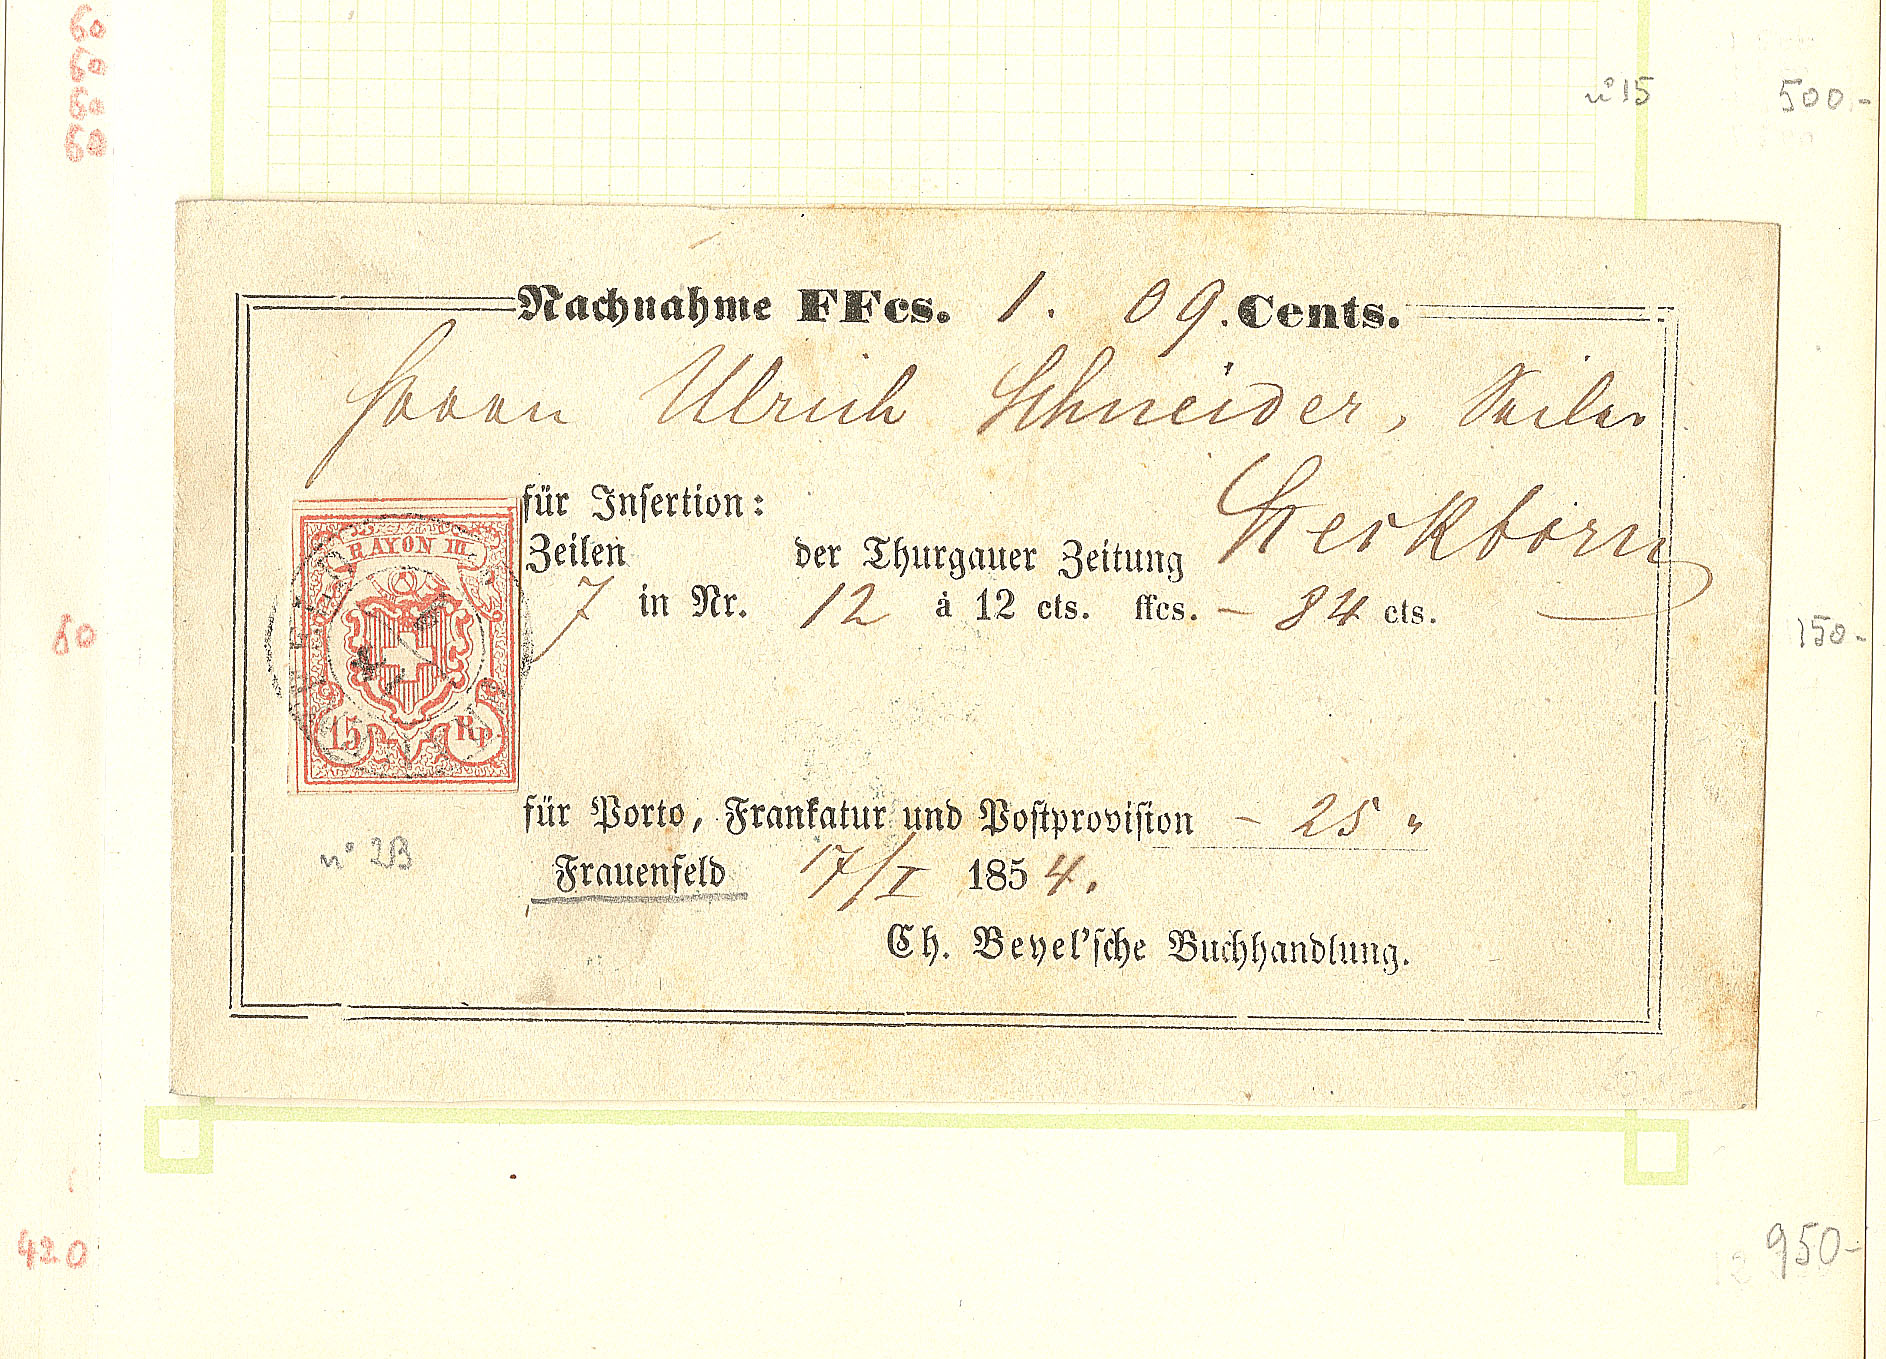 60
60
60
60
n° 15
500.-
Nachnahme FFcs. 1. 09. Cents.
Herrn Ulrich Schneider, Seiler
Steckborn
für Insertion:
Zeilen der Thurgauer Zeitung
7 in Nr. 12 à 12 cts. ffcs. – 84 cts.
RAYON III.
15 Rp.
60
150.-
für Porto, Frankatur und Postprovision – 25 "
n° 2B
Frauenfeld 17/I 1854.
Ch. Beyel'sche Buchhandlung.
420
950-